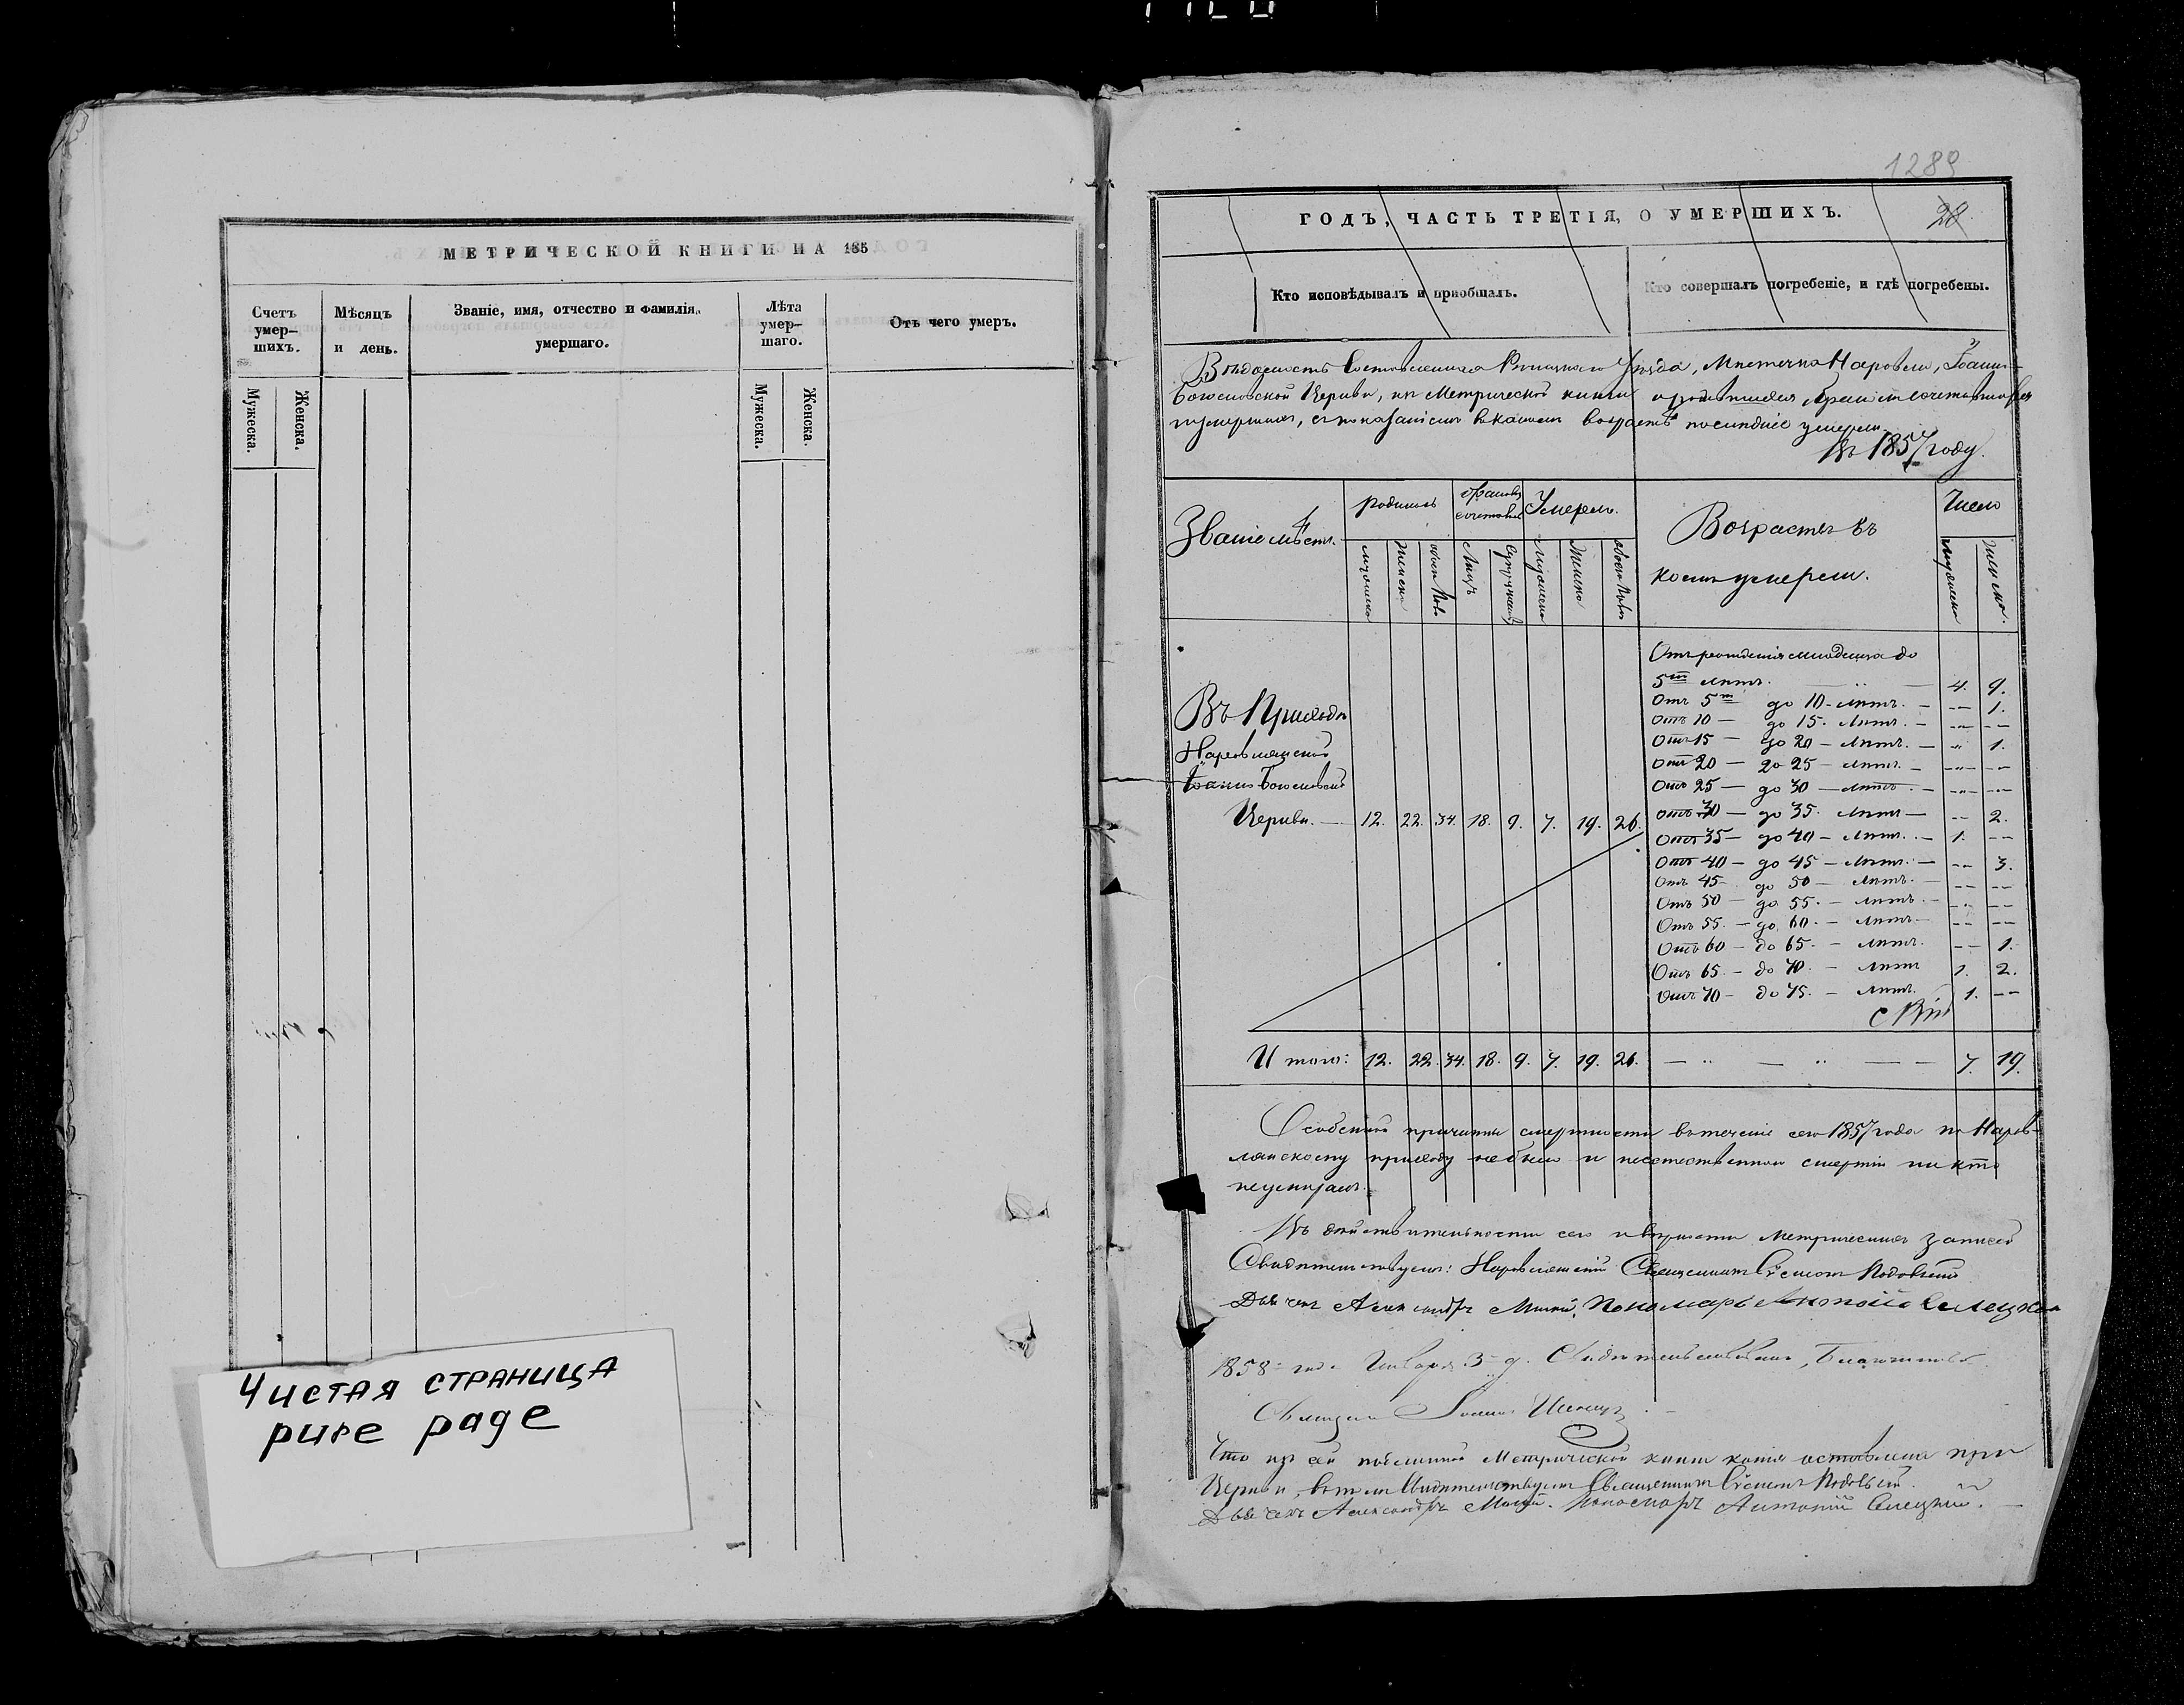 МЕТРИЧЕСКОЙ КНИГИ НА 185
Счетъ умер-шихъ.
Мѣсяцъ и день.
Званіе, имя, отчество и фамилія, умершаго.
Лѣта умер-шаго.
Отъ чего умеръ.
Мужеска.
Женска.
Мужеска.
Женска.
Чистая страница
pure page
1289
28
ГОДЪ, ЧАСТЬ ТРЕТІЯ, О УМЕРШИХЪ.
Кто исповѣдывалъ и пріобщалъ.
Кто совершалъ погребеніе, и гдѣ погребены.
Вѣдомость составленная Рѣчицкаго Уѣзда, Мѣстечка Наровли, Іоанно-
Богословской Церкви, изъ Метрической книги о родившихся, бракомъ сочетавшихся
и умершихъ, съ показаніемъ въ какомъ возрастѣ послѣдніе умерли
въ 1857 году.
Званіе мѣстъ.
Родились
Браковъ сочетавш
Умерло.
Возрастъ въ
коемъ умерли.
Число
мужеска
женска
обоего пола
Лицъ
Супружествъ
мужеска
женска
обоего пола
мужеска
женска.
Отъ рожденія младенца до
5ти лѣтъ. — 4. 9.
Отъ 5ти до 10 — лѣтъ. — -- 1.
Отъ 10 — до 15. лѣтъ. — -- --
Отъ 15 — до 20 — лѣтъ. — " 1.
Отъ 20 — до 25 — лѣтъ. — -- --
Отъ 25 — до 30 — лѣтъ. — -- --
Въ Приходѣ
Наровлянской
Іоанно Богословской
Церкви. — 12. 22. 34. 18. 9. 7. 19. 26.
Отъ 30 — до 35. лѣтъ — -- 2.
Отъ 35 — до 40 — лѣтъ. — 1. --
Отъ 40 — до 45 — лѣтъ. — -- 3.
Отъ 45 — до 50 — лѣтъ. — -- --
Отъ 50 — до 55. — лѣтъ. — -- --
Отъ 55. — до 60. — лѣтъ — -- --
Отъ 60 — до 65. — лѣтъ. -- 1.
Отъ 65. — до 70. — лѣтъ 1. 2.
Отъ 70 — до 75. — лѣтъ. 1. --
Итого: 12. 22. 34. 18. 9. 7. 19. 26. — " — " — — 7. 19.
Особенной причины смертности въ теченіе сего 1857 года по Наров-
лянскому приходу не было и неестественною смертію никто
не умиралъ.
Въ дѣйствительности сего и вѣрности метрическихъ записей
Свидѣтельствуемъ: Наровлянскій Священникъ Сѵмеонъ
Дьячекъ Александръ Пономарь Антоній
1858 года Января 3 д. Свидѣтельствовалъ, Благочинный
Священникъ Іоаннъ
Что изъ сей подлинной Метрической книги копія оставлена при
Церкви, въ томъ свидѣтельствуемъ Священникъ Сѵмеонъ
Дьячекъ Александръ Пономарь Антоній